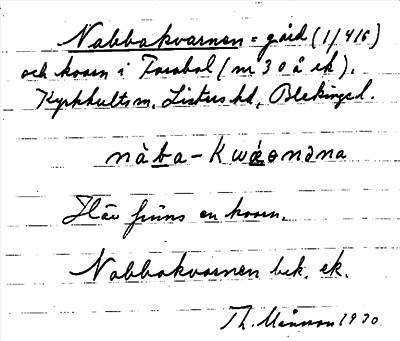 Nabbakvarnen = gård (1/416)
och kvarn i Farabol (nr 30 å ek).
Kyrkhults sn, Listers hd, Blekinge l.
nàba-kwáɵnəna
Här finns en kvarn.
Nabbakvarnen bek. ek.
Th. Månsson 1930